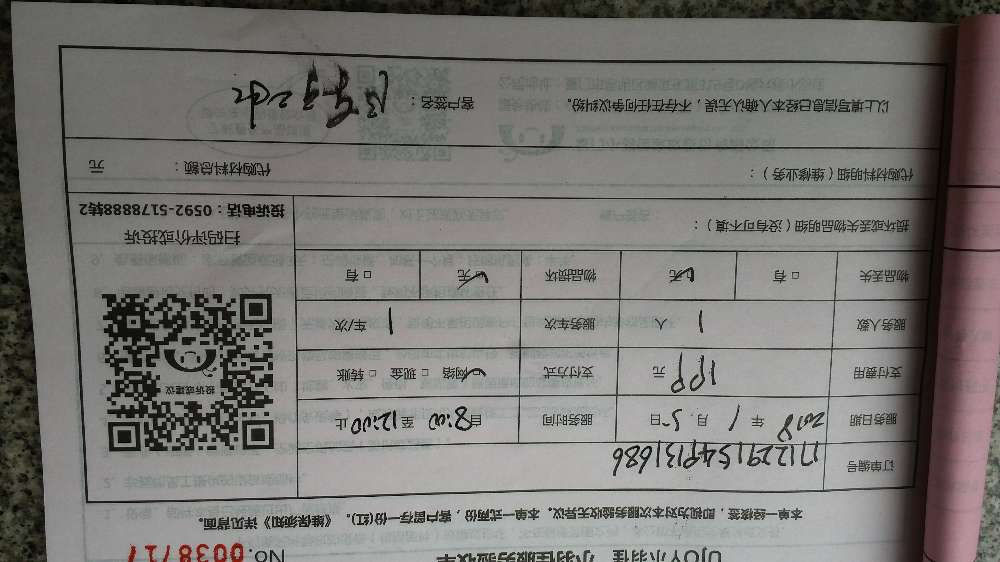 UJOY小羽佳 小羽佳服务验收单 NO. 0038717
本单一经核签,即视为对本次服务验收无异议。本单一式两份,客户留存一份(红)。《维保须知》详见背面。
订单编号 1712291549131686
服务日期 2018 年 1 月 5 日 服务时间 自 8:00 至 12:00 止
支付费用 199 元 支付方式 网络 □ 现金 □ 转账
服务人数 1 人 服务车次 1 车/次
物品丢失 □ 有 □ 无 物品损坏 □ 有 □ 无
投诉或建议
扫码评价或投诉
投诉电话:0592-5178888转2
损坏或丢失物品明细(没有可不填):
代购材料明细(维修业务): 代购材料总额: 元
以上填写信息已经本人确认无误,不存在任何争议纠纷。 客户签名: